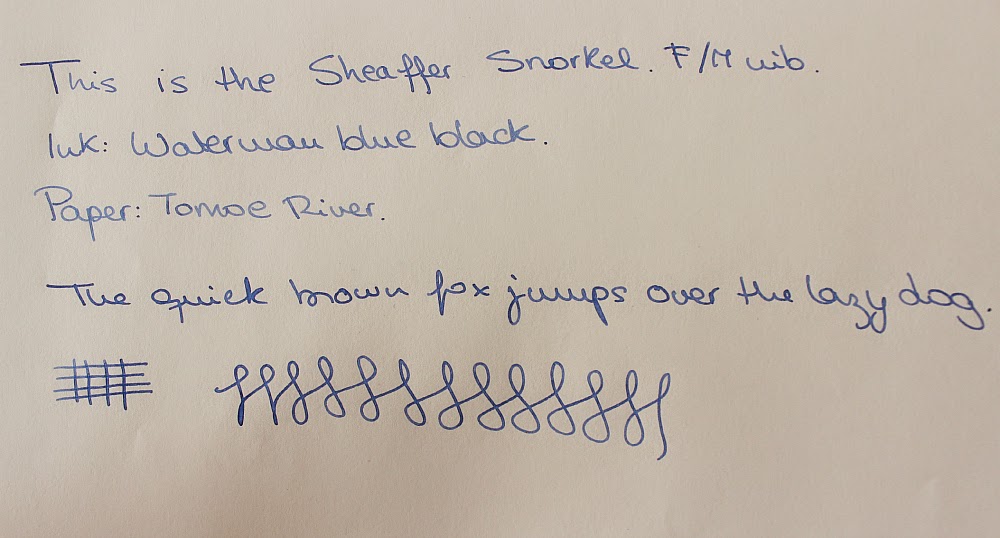 This is the Sheaffer Snorkel. F/M nib.
Ink: Waterman blue black.
Paper: Tomoe River.
The quick brown fox jumps over the lazy dog.